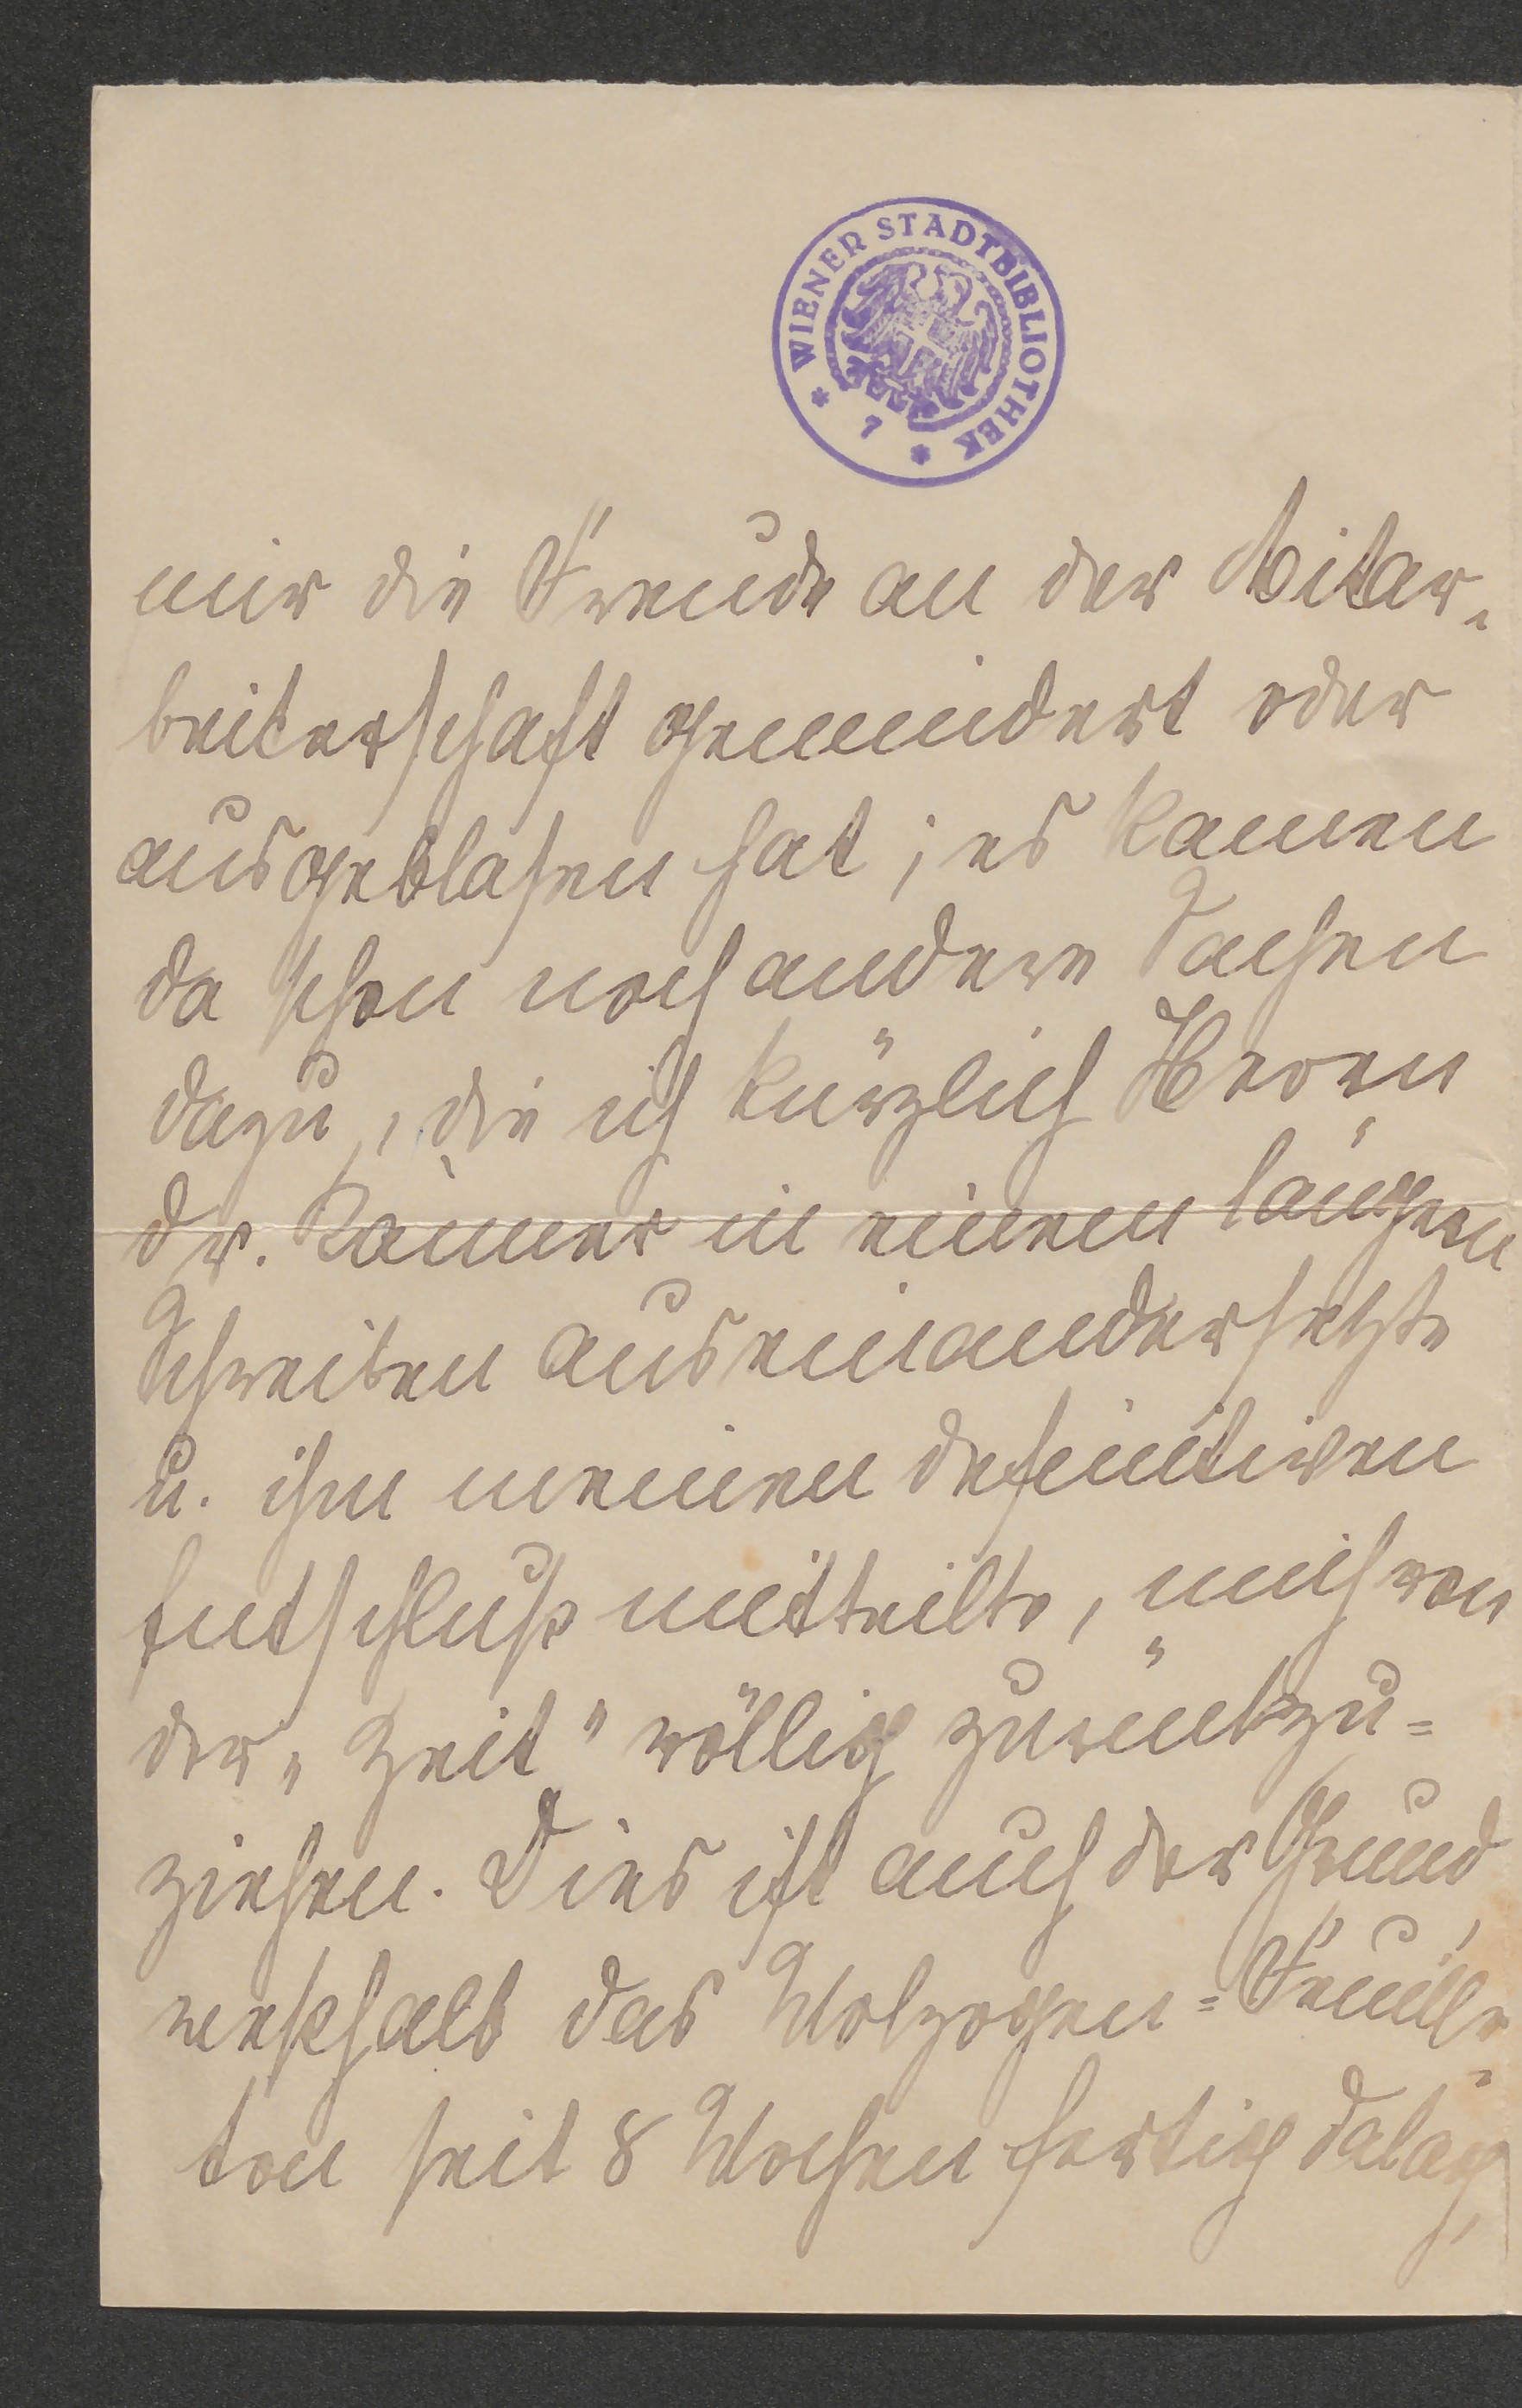 WIENER STADTBIBLIOTHEK
* 7 *
mir die Freude an der Mitar-
beiterschaft gemindert oder
ausgeblasen hat; es kamen
da schon noch andere Sachen
dazu, die ich kürzlich Herrn
Dr. Kanner in einem längern
Schreiben auseinandersetzte
u. ihm meinen definitiven
Entschluß mitteilte, mich von
der „Zeit“ völlig zurückzu=
ziehen. Dies ist auch der Grund,
weßhalb das Wolzogen=Feuille=
ton seit 8 Wochen fertig dalag,